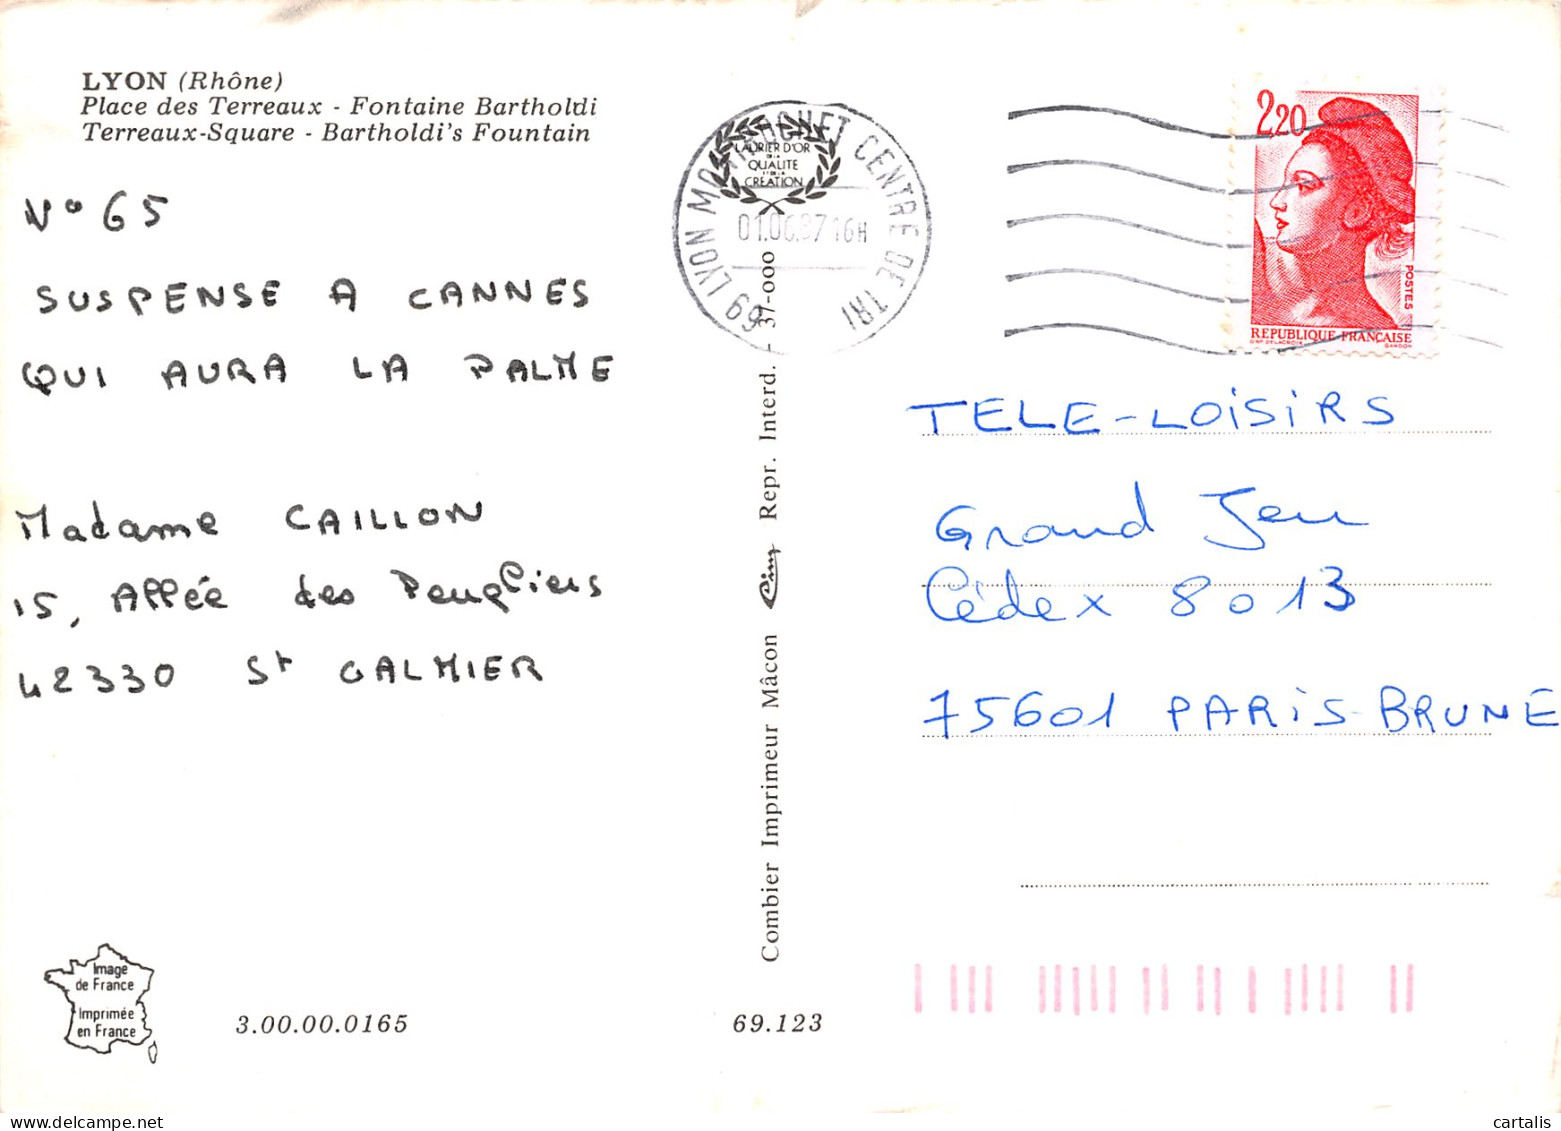 LYON (Rhône)
Place des Terreaux - Fontaine Bartholdi
Terreaux-Square - Bartholdi's Fountain
N° 65
SUSPENSE A CANNES
QUI AURA LA PALME
Madame CAILLON
15, Allée des Peupliers
42330 St GALMIER
Image
de France
Imprimée
en France
3.00.00.0165
69.123
Combier Imprimeur Mâcon Cim Repr. Interd. - 37-000
LAURIER D'OR
DE LA
QUALITE
ET DE LA
CREATION
69 LYON MONTROCHET CENTRE DE TRI
01.06.87 16H
2,20
POSTES
REPUBLIQUE FRANÇAISE
D'AP. DELACROIX GANDON
TELE-LOISIRS
Grand Jeu
Cédex 8013
75601 PARIS-BRUNE
cartalis